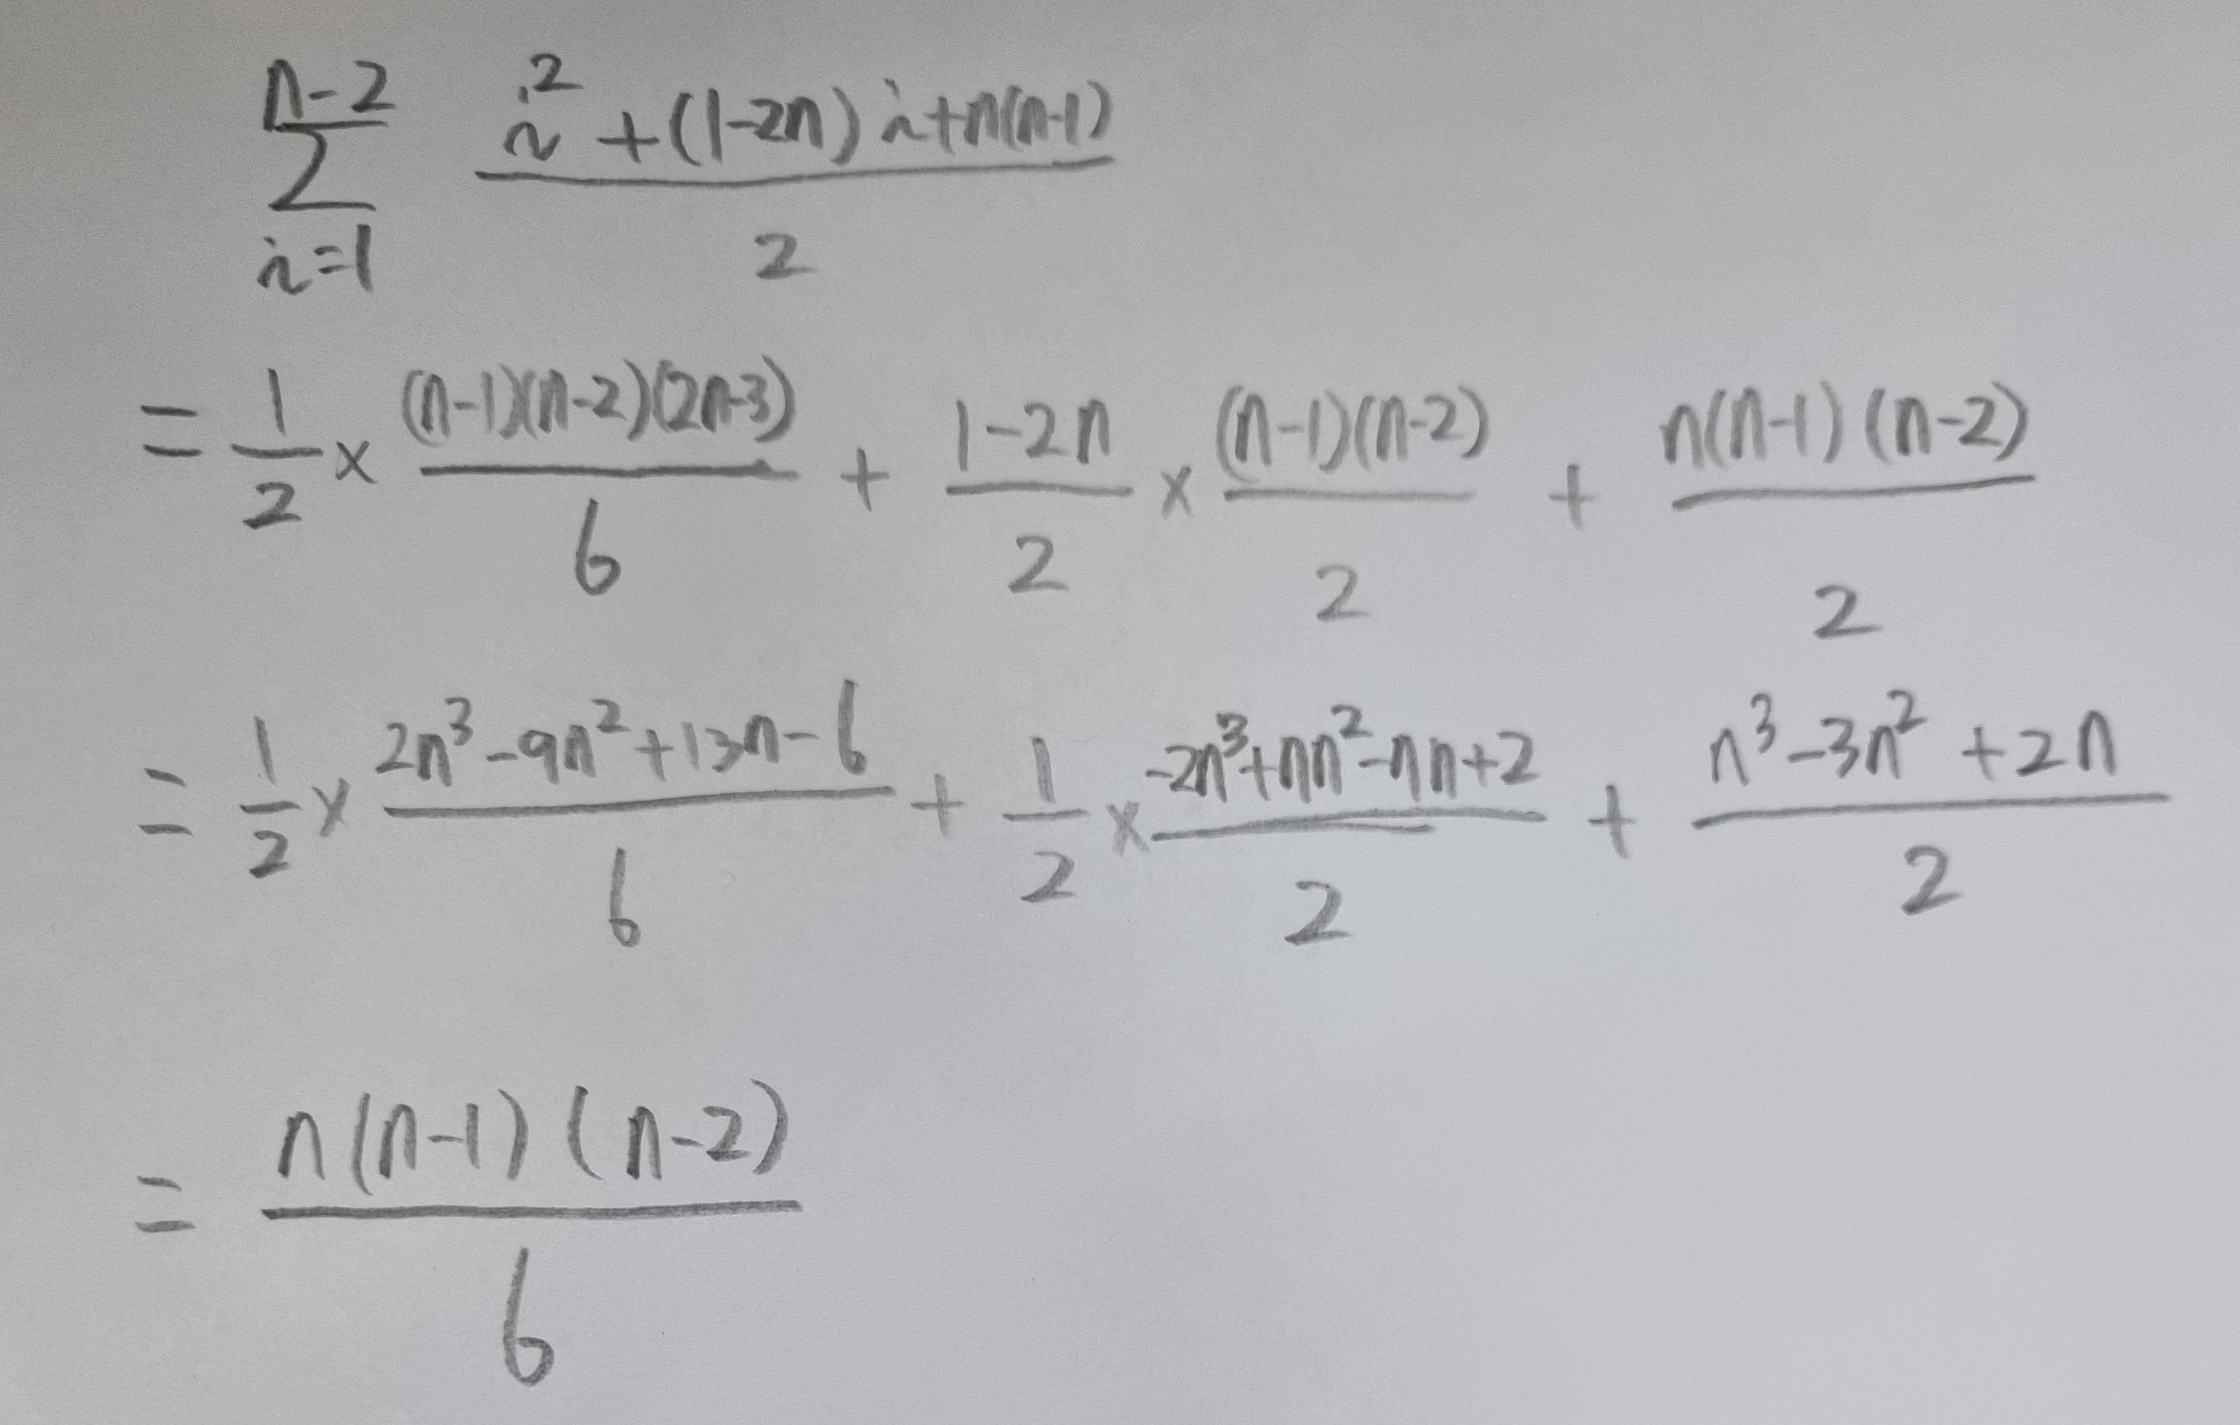 \sum_{i=1}^{n-2} \frac{i^2+(1-2n)i+n(n-1)}{2}
= \frac{1}{2} × \frac{(n-1)(n-2)(2n-3)}{6} + \frac{1-2n}{2} × \frac{(n-1)(n-2)}{2} + \frac{n(n-1)(n-2)}{2}
= \frac{1}{2} × \frac{2n^3-9n^2+13n-6}{6} + \frac{1}{2} × \frac{-2n^3+nn^2-nn+2}{2} + \frac{n^3-3n^2+2n}{2}
= \frac{n(n-1)(n-2)}{6}